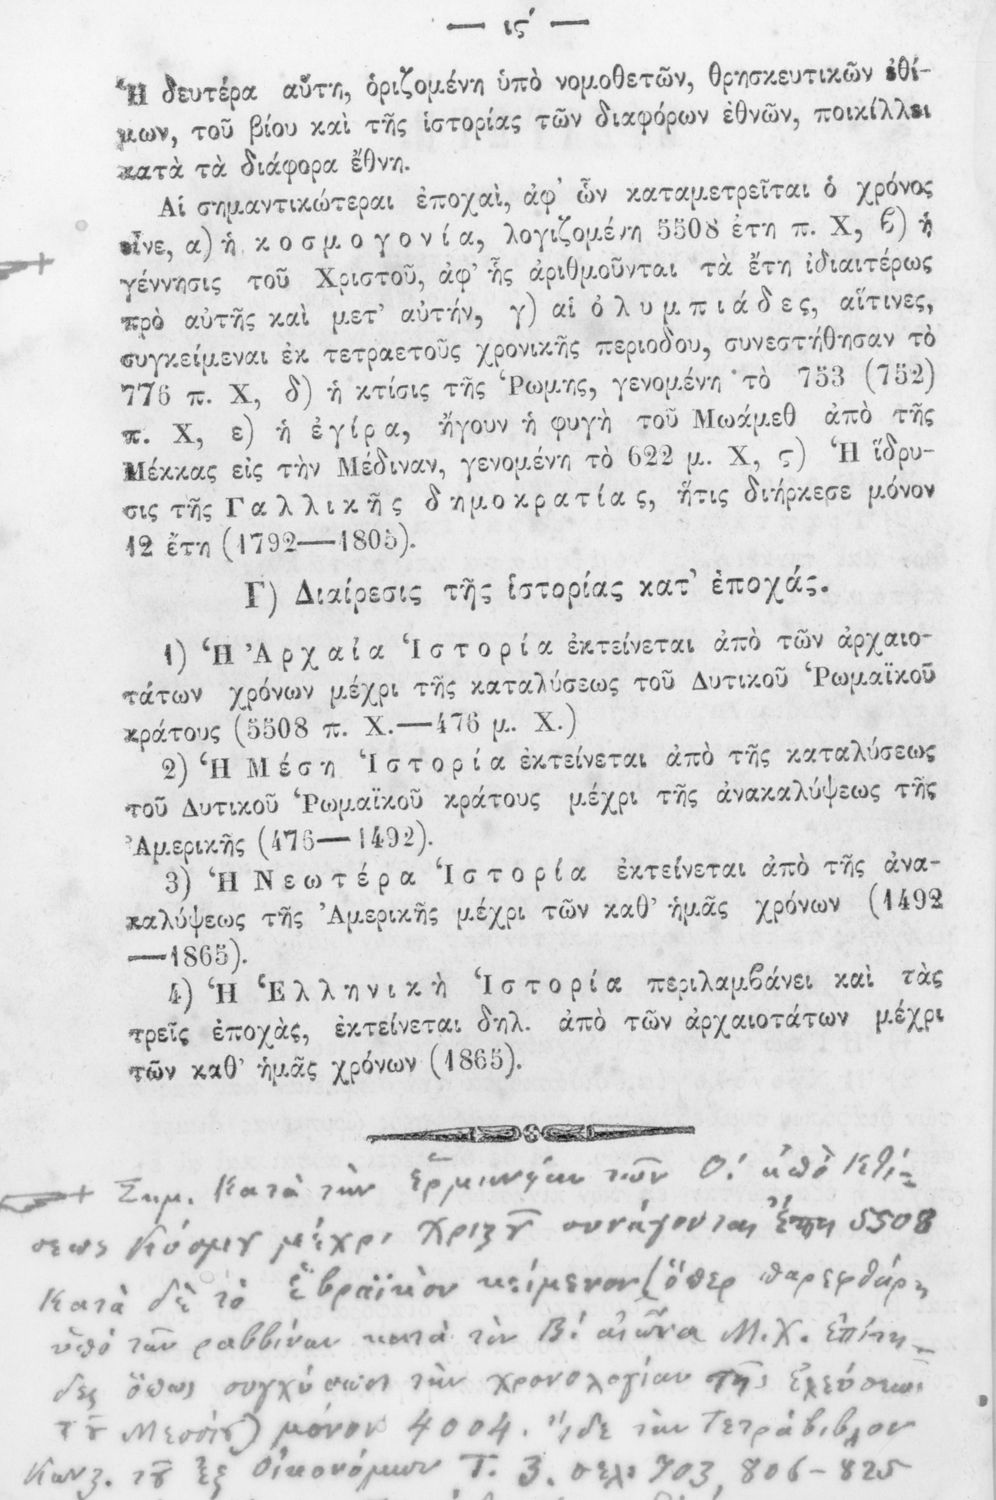 — ις΄ —
Ἡ δευτέρα αὕτη, ὁριζομένη ὑπὸ νομοθετῶν, θρησκευτικῶν ἐθί-
μων, τοῦ βίου καὶ τῆς ἱστορίας τῶν διαφόρων ἐθνῶν, ποικίλλει
κατὰ τὰ διάφορα ἔθνη.
Αἱ σημαντικώτεραι ἐποχαὶ, ἀφ' ὧν καταμετρεῖται ὁ χρόνος
εἶνε, α) ἡ κοσμογονία, λογιζομένη 5508 ἔτη π. Χ, β) ἡ
γέννησις τοῦ Χριστοῦ, ἀφ' ἧς ἀριθμοῦνται τὰ ἔτη ἰδιαιτέρως
πρὸ αὐτῆς καὶ μετ' αὐτήν, γ) αἱ ὀλυμπιάδες, αἵτινες,
συγκείμεναι ἐκ τετραετοῦς χρονικῆς περιοδου, συνεστήθησαν τὸ
776 π. Χ, δ) ἡ κτίσις τῆς Ῥωμης, γενομένη τὸ 753 (752)
π. Χ, ε) ἡ ἐγίρα, ἤγουν ἡ φυγὴ τοῦ Μωάμεθ ἀπὸ τῆς
Μέκκας εἰς τὴν Μέδιναν, γενομένη τὸ 622 μ. Χ, ς) Ἡ ἵδρυ-
σις τῆς Γαλλικῆς δημοκρατίας, ἥτις διήρκεσε μόνον
12 ἔτη (1792—1805).
Γ) Διαίρεσις τῆς ἱστορίας κατ' ἐποχάς.
1) Ἡ Ἀρχαία Ἱστορία ἐκτείνεται ἀπὸ τῶν ἀρχαιο-
τάτων χρόνων μέχρι τῆς καταλύσεως τοῦ Δυτικοῦ Ῥωμαϊκοῦ
κράτους (5508 π. Χ.—476 μ. Χ.)
2) Ἡ Μέση Ἱστορία ἐκτείνεται ἀπὸ τῆς καταλύσεως
τοῦ Δυτικοῦ Ῥωμαϊκοῦ κράτους μέχρι τῆς ἀνακαλύψεως τῆς
Ἀμερικῆς (476—1492).
3) Ἡ Νεωτέρα Ἱστορία ἐκτείνεται ἀπὸ τῆς ἀνα-
καλύψεως τῆς Ἀμερικῆς μέχρι τῶν καθ' ἡμᾶς χρόνων (1492
—1865).
4) Ἡ Ἑλληνικὴ Ἱστορία περιλαμβάνει καὶ τὰς
τρεῖς ἐποχὰς, ἐκτείνεται δηλ. ἀπὸ τῶν ἀρχαιοτάτων μέχρι
τῶν καθ' ἡμᾶς χρόνων (1865).
Σημ. Κατὰ τὴν ἑρμηνείαν τῶν Ο΄. ἀπὸ Κτί-
σεως Κόσμου μέχρι Χριστοῦ συνάγονται ἔτη 5508
Κατὰ δὲ τὸ ἑβραϊκὸν κείμενον (ὅπερ παρεφθάρη
ὑπὸ τῶν ραββίνων κατὰ τὸν Β΄. αἰῶνα Μ.Χ. ἐπίτη-
δες ὅπως συγχύσωσι τὴν χρονολογίαν τῆς ἐλεύσεως
τοῦ Μεσσίου) μόνον 4004. Ἴδε τὴν Τετράβιβλον
Κωνσ. τοῦ ἐξ Οἰκονόμων Τ. 3. σελ. 703, 806-825